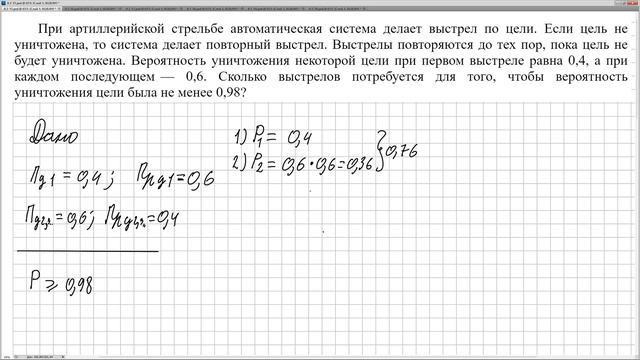 При артиллерийской стрельбе автоматическая система делает выстрел по цели. Если цель не
уничтожена, то система делает повторный выстрел. Выстрелы повторяются до тех пор, пока цель не
будет уничтожена. Вероятность уничтожения некоторой цели при первом выстреле равна 0,4, а при
каждом последующем — 0,6. Сколько выстрелов потребуется для того, чтобы вероятность
уничтожения цели была не менее 0,98?
Дано
1) P₁ = 0,4
2) P₂ = 0,6 · 0,6 = 0,36 } 0,76
Пд1 = 0,4 ; Прд1 = 0,6
= 0,6 ; = 0,4
P ⩾ 0,98